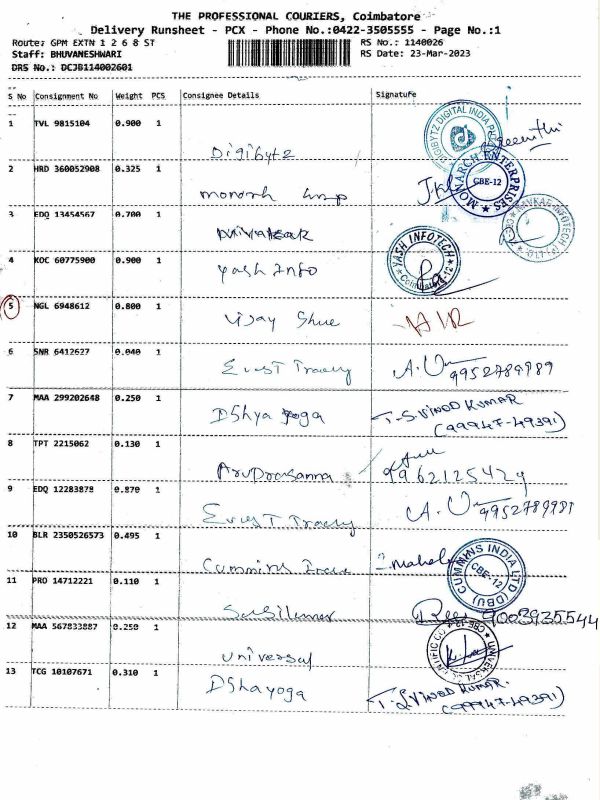 THE PROFESSIONAL COURIERS, Coimbatore
Delivery Runsheet - PCX - Phone No.:0422-3505555 - Page No.:1
Route: GPM EXTN 1 2 6 8 ST RS No.: 1140026
Staff: BHUVANESHWARI RS Date: 23-Mar-2023
DRS No.: DCJB114002601
S No Consignment No Weight PCS Consignee Details Signature
1 TVL 9815104 0.900 1 Digibytz DIGIBYTZ DIGITAL INDIA
2 HRD 360052908 0.325 1 MONARCH ENTERPRISES CBE-12
3 EDQ 13454567 0.700 1 NAVKAR INFOTECH
4 KOC 60775900 0.900 1 Yash Info YASH INFOTECH Coimbatore-12
5 NGL 6948612 0.800 1 Vijay Shree
6 SNR 6412627 0.040 1 9952789989
7 MAA 299202648 0.250 1 Dshya yoga T.S.VINOD KUMAR
(99947-49391)
8 TPT 2215062 0.130 1 Aruprasanna 9962125424
9 EDQ 12283878 0.870 1 9952789981
10 BLR 2350526573 0.495 1 Cummins CUMMINS INDIA LTD (DBU) CBE-12
11 PRO 14712221 0.110 1 9003935544
12 MAA 567833887 0.250 1 Universal UNIVERSAL CBE-12
13 TCG 10107671 0.310 1 Dshayoga T.S.VINOD KUMAR.
(99947-49391)